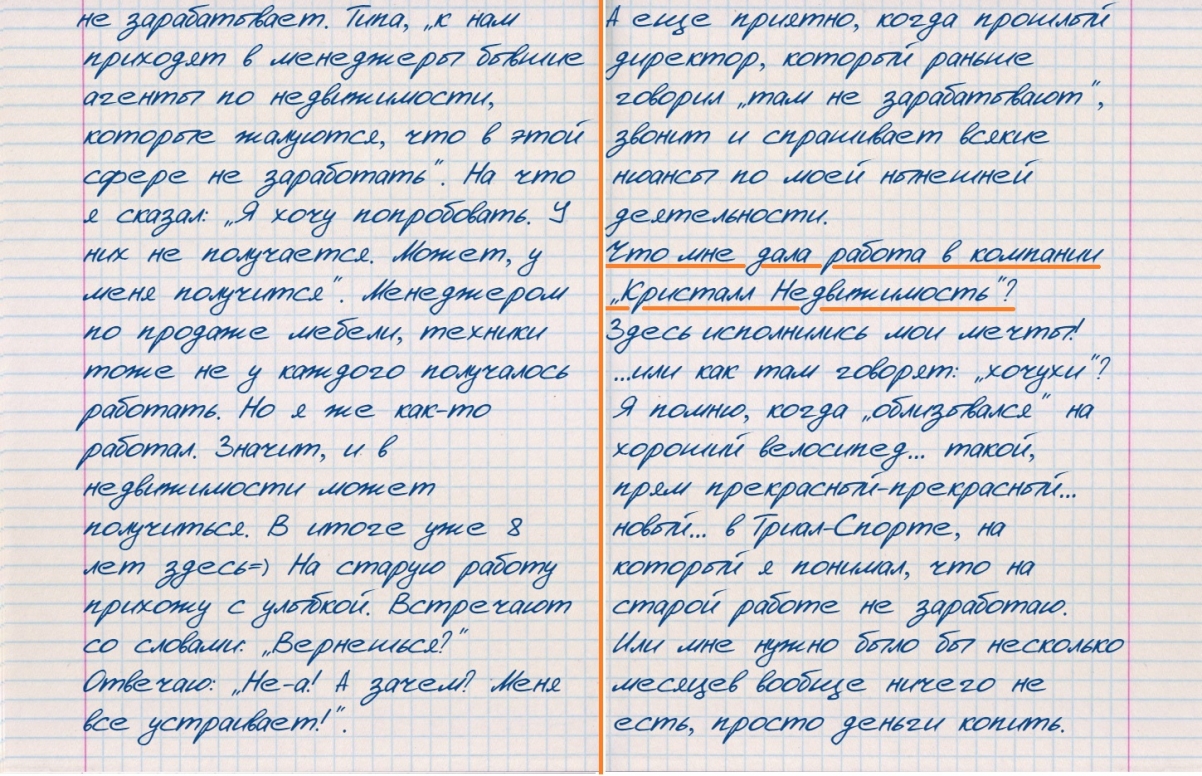 не зарабатывает. Типа, „к нам
приходят в менеджеры бывшие
агенты по недвижимости,
которые жалуются, что в этой
сфере не заработать". На что
я сказал: „Я хочу попробовать. У
них не получается. Может, у
меня получится". Менеджером
по продаже мебели, техники
тоже не у каждого получалось
работать. Но я же как-то
работал. Значит, и в
недвижимости может
получиться. В итоге уже 8
лет здесь=) На старую работу
прихожу с улыбкой. Встречают
со словами: „Вернешься?"
Отвечаю: „Не-а! А зачем? Меня
все устраивает!".
А еще приятно, когда прошлый
директор, который раньше
говорил „там не зарабатывают",
звонит и спрашивает всякие
нюансы по моей нынешней
деятельности.
Что мне дала работа в компании
„Кристалл Недвижимость"?
Здесь исполнились мои мечты!
...или как там говорят: „хочухи"?
Я помню, когда „облизывался" на
хороший велосипед... такой,
прям прекрасный-прекрасный...
новый... в Триал-Спорте, на
который я понимал, что на
старой работе не заработаю.
Или мне нужно было бы несколько
месяцев вообще ничего не
есть, просто деньги копить.